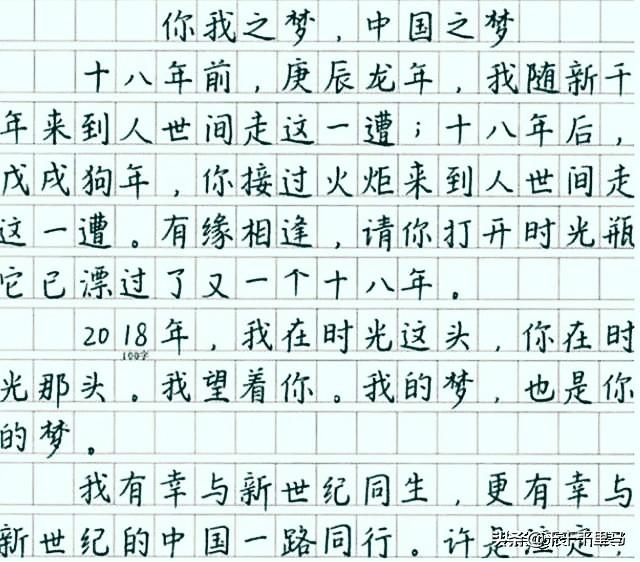 你我之梦，中国之梦
十八年前，庚辰龙年，我随新千
年来到人世间走这一遭；十八年后，
戊戌狗年，你接过火炬来到人世间走
这一遭。有缘相逢，请你打开时光瓶
它已漂过了又一个十八年。
2018年，我在时光这头，你在时
100字
光那头。我望着你。我的梦，也是你
的梦。
我有幸与新世纪同生，更有幸与
新世纪的中国一路同行。许是注定，
头条@